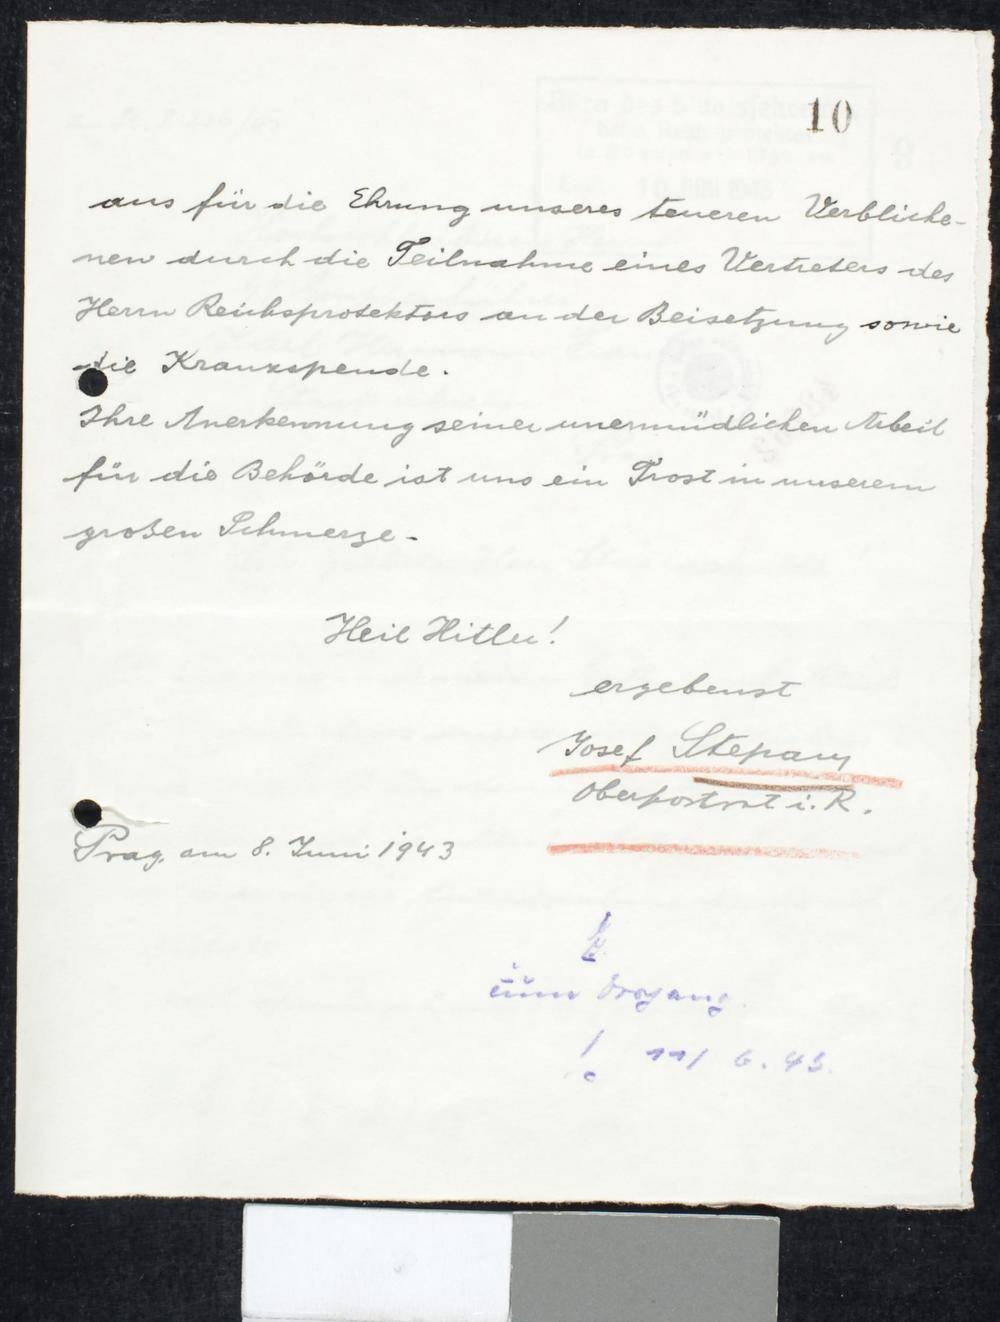 10
aus für die Ehrung unseres teueren Verbliche-
nen durch die Teilnahme eines Vertreters des
Herrn Reichsprotektors an der Beisetzung sowie
die Kranzspende.
Ihre Anerkennung seiner unermüdlichen Arbeit
für die Behörde ist uns ein Trost in unserem
großen Schmerze.
Heil Hitler!
ergebenst
Josef Stepany
Oberpostrat i. R.
Prag am 8. Juni 1943
zum Vorgang.
! 11/ 6. 43.